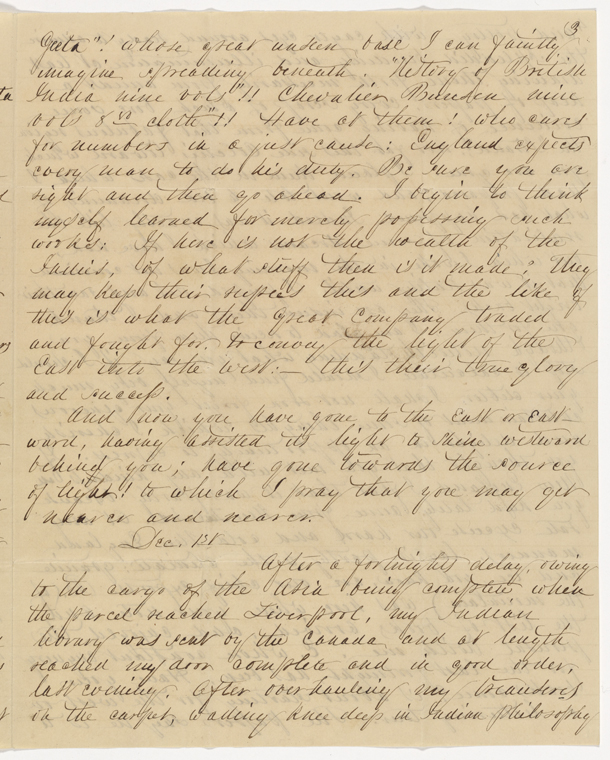 3
Geeta"! whose great unseen base I can faintly
imagine spreading beneath. "History of British
India nine vols"!! Chevalier Bunsen nine
vols 8vo cloth"!! Have at them! who cares
for numbers in a just cause: England expects
every man to do his duty. Be sure you are
right and then go ahead. I begin to think
myself learned for merely possessing such
works: If here is not the wealth of the
Indies, of what stuff then is it made? They
may keep their rupees this and the like of
this is what the great company traded
and fought for. To convey the light of the
East into the west:— this their true glory
and success.
And now you have gone to the East or East
ward, having assisted its light to shine westward
behind you; have gone towards the source
of light! to which I pray that you may get
nearer and nearer.
Dec. 1st
After a fortnights delay, owing
to the cargo of the Asia being complete when
the parcel reached Liverpool, my Indian
library was sent by the Canada and at length
reached my door complete and in good order,
last evening. After overhauling my treasures
on the carpet, wading knee deep in Indian philosophy